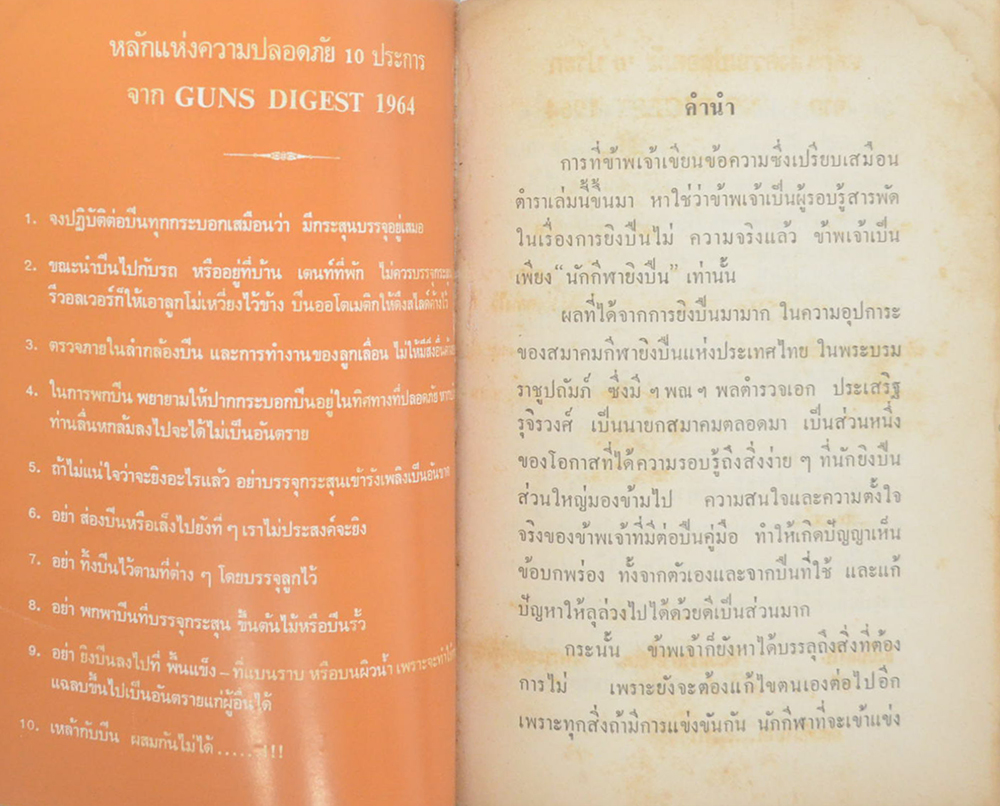 หลักแห่งความปลอดภัย 10 ประการ
จาก GUNS DIGEST 1964
1. จงปฏิบัติต่อปืนทุกกระบอกเสมือนว่า มีกระสุนบรรจุอยู่เสมอ
2. ขณะนำปืนไปกับรถ หรืออยู่ที่บ้าน เดนท์ที่พัก ไม่ควรบรรจุกระสุน
รีวอลเวอร์ก็ให้เอาลูกโม่เหวี่ยงไว้ข้าง ปืนออโตเมติกให้ดึงสไลด์ค้างไว้
3. ตรวจภายในลำกล้องปืน และการทำงานของลูกเลื่อน ไม่ให้มีสิ่งอื่น
4. ในการพกปืน พยายามให้ปากกระบอกปืนอยู่ในทิศทางที่ปลอดภัย
ท่านลื่นหกล้มลงไปจะได้ไม่เป็นอันตราย
5. ถ้าไม่แน่ใจว่าจะยิงอะไรแล้ว อย่าบรรจุกระสุนเข้ารังเพลิงเป็นอันขาด
6. อย่า ส่องปืนหรือเล็งไปยังที่ ๆ เราไม่ประสงค์จะยิง
7. อย่า ทิ้งปืนไว้ตามที่ต่าง ๆ โดยบรรจุลูกไว้
8. อย่า พกพาปืนที่บรรจุกระสุน ขึ้นต้นไม้หรือปีนรั้ว
9. อย่า ยิงปืนลงไปที่ พื้นแข็ง – ที่แบนราบ หรือบนผิวน้ำ เพราะจะทำให้
แฉลบขึ้นไปเป็นอันตรายแก่ผู้อื่นได้
10. เหล้ากับปืน ผสมกันไม่ได้ ......!!!
คำนำ
การที่ข้าพเจ้าเขียนข้อความซึ่งเปรียบเสมือน
ตำราเล่มนี้ขึ้นมา หาใช่ว่าข้าพเจ้าเป็นผู้รอบรู้สารพัด
ในเรื่องการยิงปืนไม่ ความจริงแล้ว ข้าพเจ้าเป็น
เพียง “นักกีฬายิงปืน” เท่านั้น
ผลที่ได้จากการยิงปืนมามาก ในความอุปการะ
ของสมาคมกีฬายิงปืนแห่งประเทศไทย ในพระบรม
ราชูปถัมภ์ ซึ่งมี ฯ พณ ฯ พลตำรวจเอก ประเสริฐ
รุจิรวงศ์ เป็นนายกสมาคมตลอดมา เป็นส่วนหนึ่ง
ของโอกาสที่ได้ความรอบรู้ถึงสิ่งง่าย ๆ ที่นักยิงปืน
ส่วนใหญ่มองข้ามไป ความสนใจและความตั้งใจ
จริงของข้าพเจ้าที่มีต่อปืนคู่มือ ทำให้เกิดปัญญาเห็น
ข้อบกพร่อง ทั้งจากตัวเองและจากปืนที่ใช้ และแก้
ปัญหาให้ลุล่วงไปได้ด้วยดีเป็นส่วนมาก
กระนั้น ข้าพเจ้าก็ยังหาได้บรรลุถึงสิ่งที่ต้อง
การไม่ เพราะยังจะต้องแก้ไขตนเองต่อไปอีก
เพราะทุกสิ่งถ้ามีการแข่งขันกัน นักกีฬาที่จะเข้าแข่ง